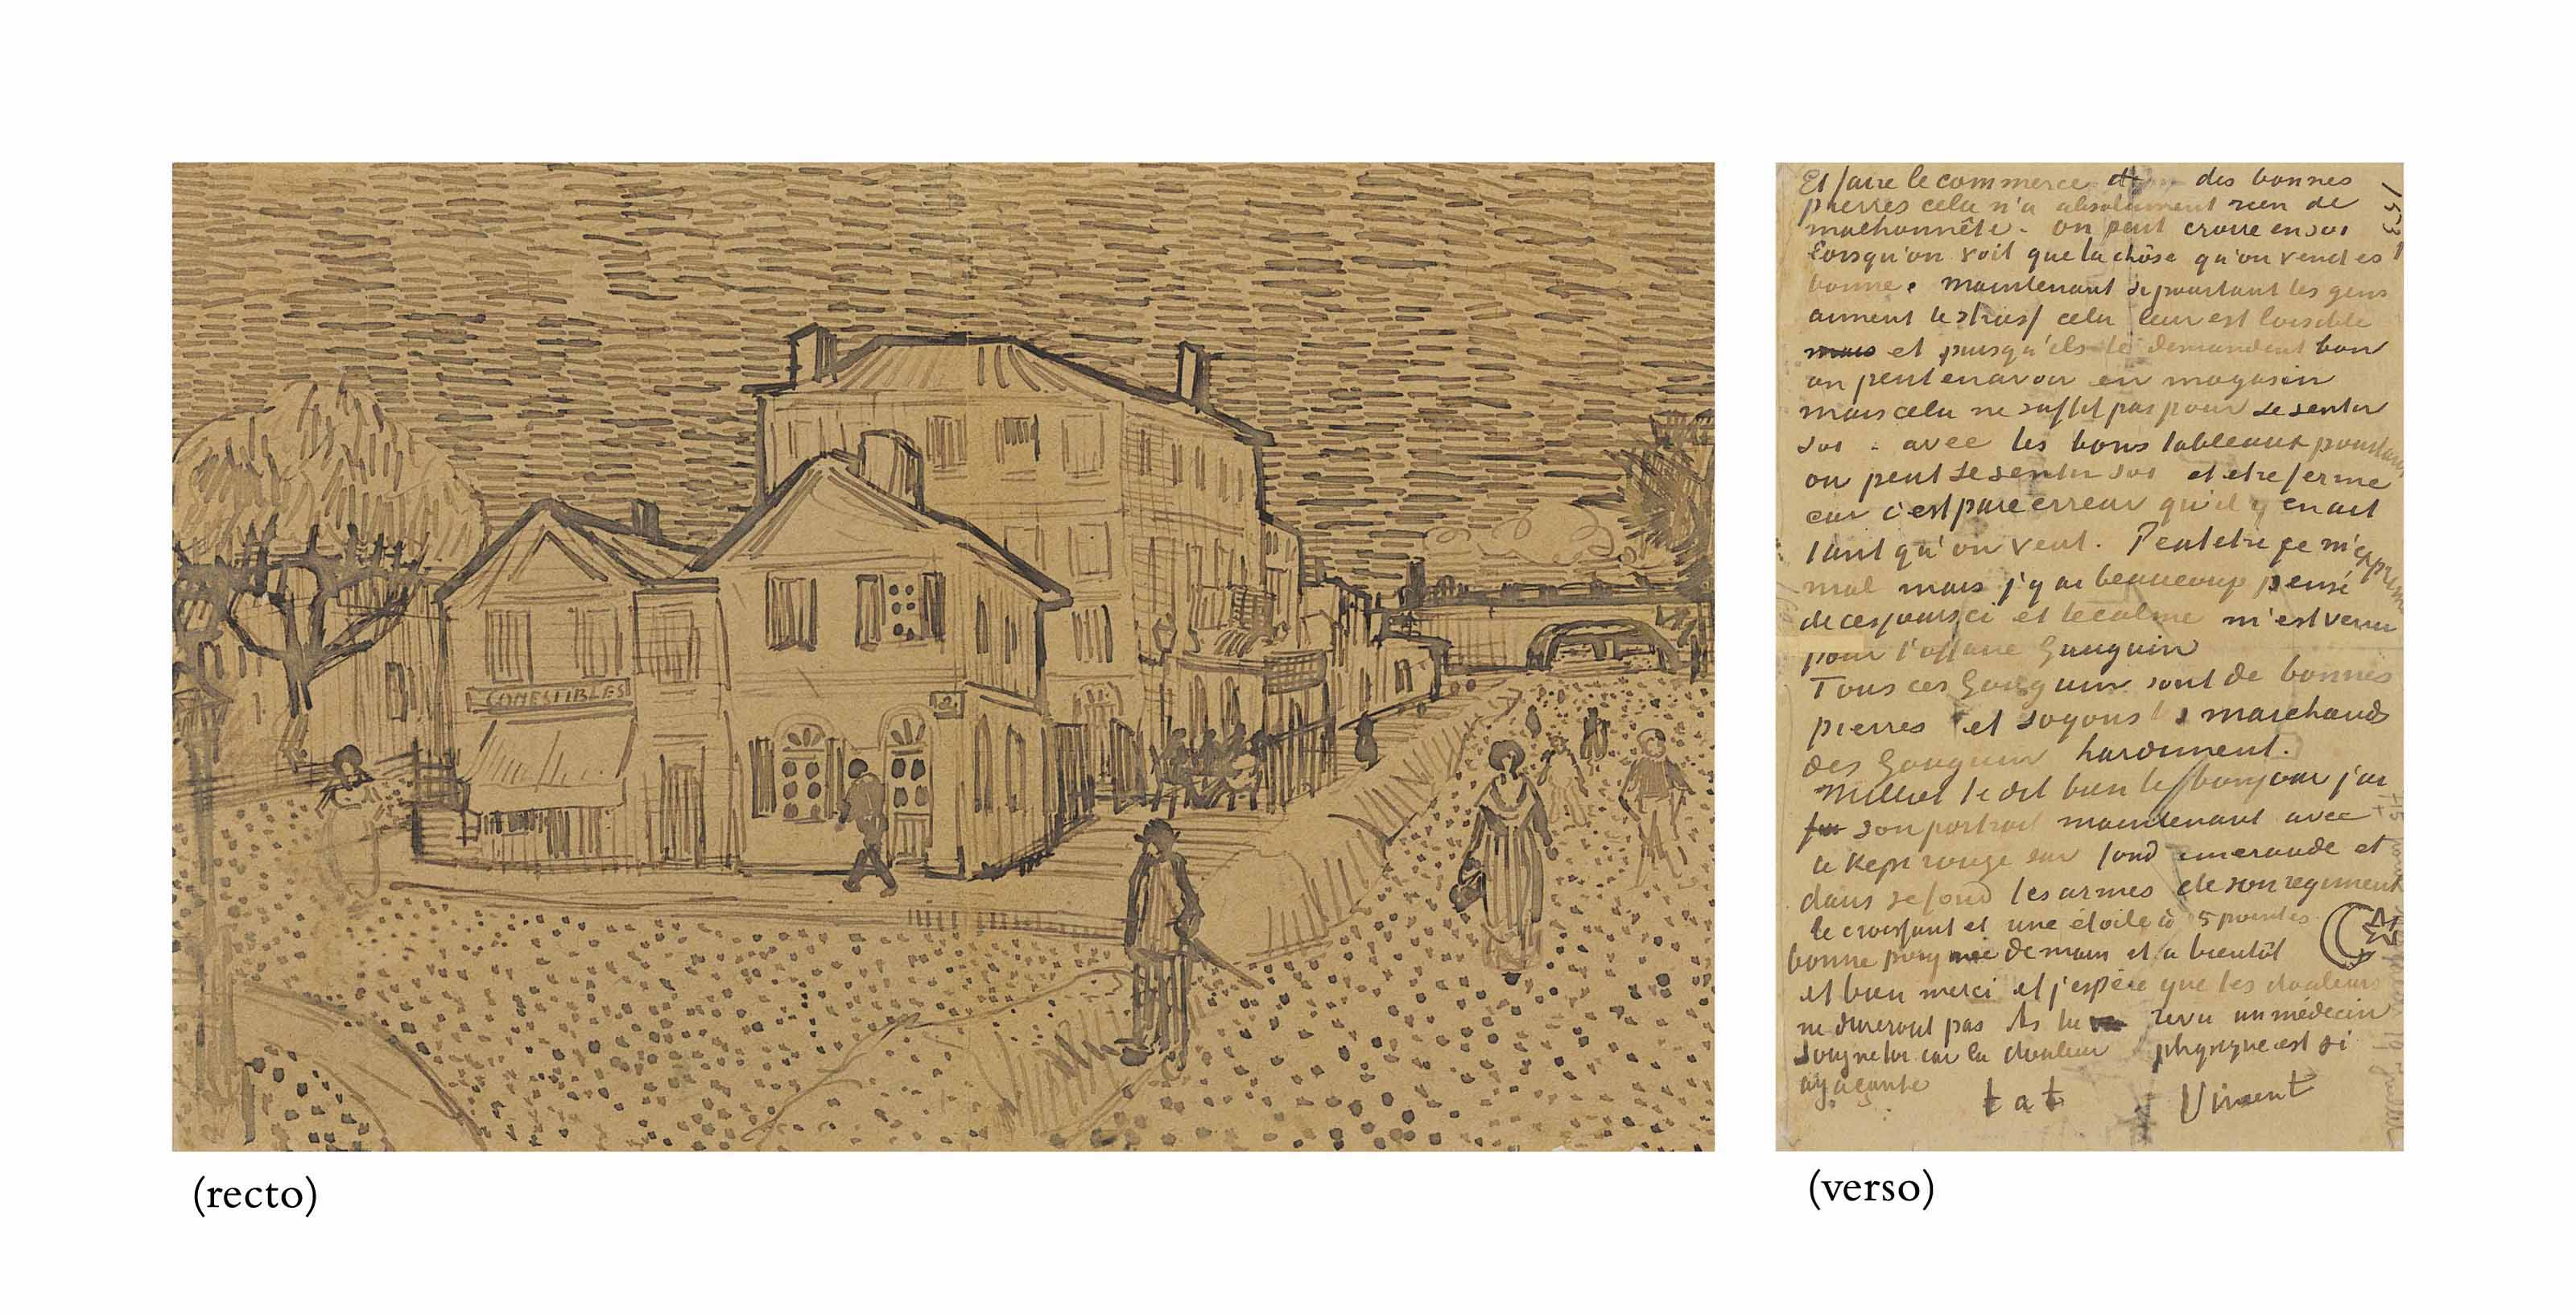 COMESTIBLES
2
(recto)
Et faire le commerce des bonnes
pierres cela n'a absolument rien de
malhonnête. On peut croire en soi
lorsqu'on voit que la chôse qu'on vend es
bonne. maintenant si pourtant les gens
aiment le strass cela leur est loisible
mais et puisqu'ils le demandent bon
on peut en avoir en magasin
mais cela ne suffit pas pour se sentir
soi. avec les bons tableaux pourtant
on peut se sentir soi et etre ferme
car c'est pure erreur qu'il y en ait
tant qu'on veut. Peutetre je m'exprime
mal mais j'y ai beaucoup pensé
de ces jours ci et le calme m'est venu
pour l'affaire Gauguin
Tous ces Gauguin sont de bonnes
pierres et soyons les marchands
des Gauguin hardiment.
Milliet te dit bien le bonjour j'ai
son portrait maintenant avec
le Kepi rouge sur fond emeraude et
dans ce fond les armes de son regiment
le croissant et une étoile à 5 pointes
bonne poignée de main et a bientôt
et bien merci et j'espère que les douleurs
ne dureront pas As tu revu un médecin
Soigne toi car la douleur physique est si
agaçante
t a t Vincent
153
(verso)